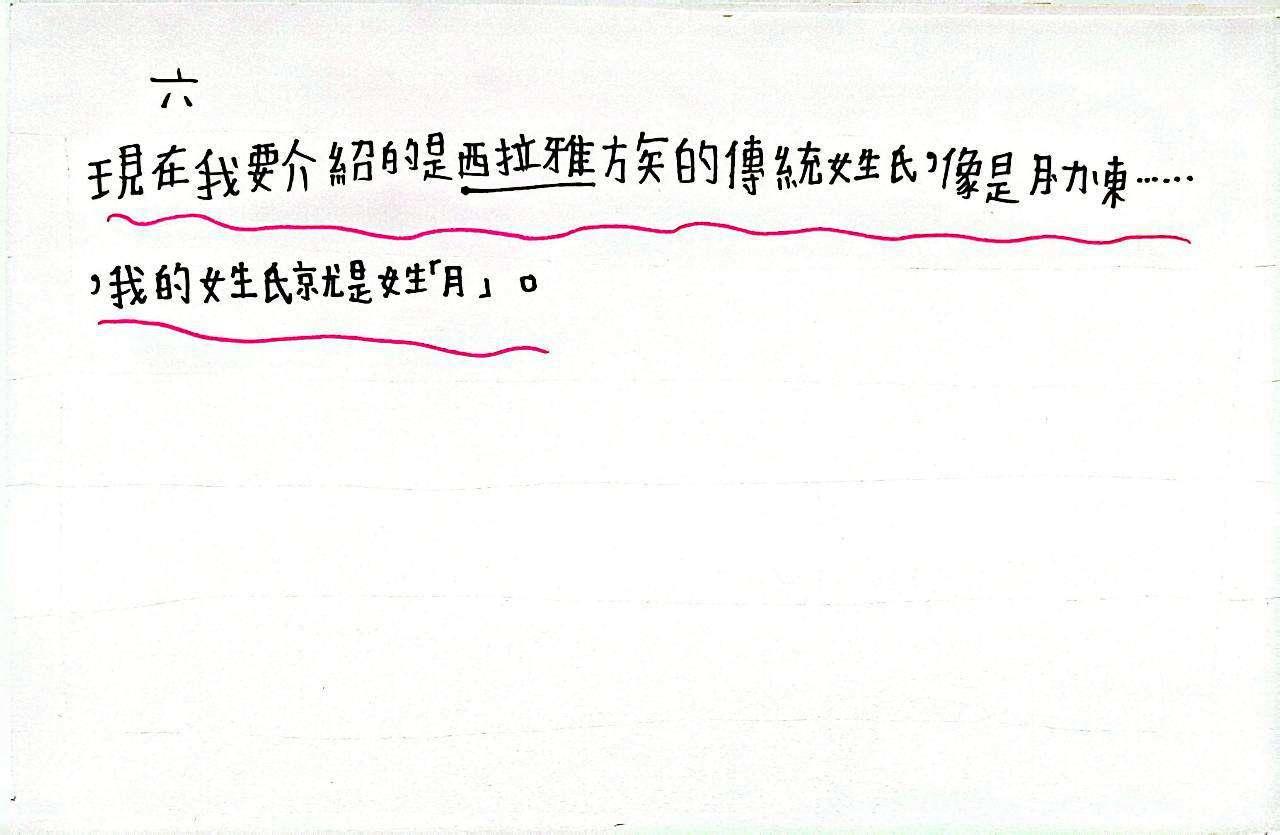 六
現在我要介紹的是西拉雅族的傳統姓氏,像是月、力、東……
,我的姓氏就是姓「月」。